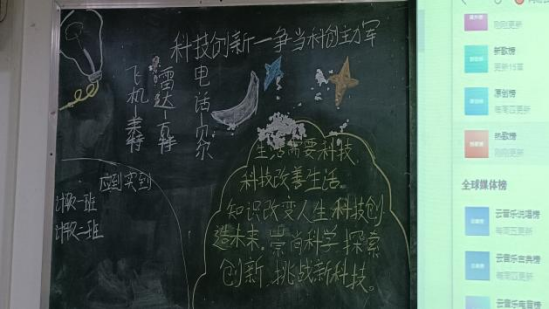 科技创新一争当科创主力军
飞机—莱特
雷达—瓦特
电话—贝尔
应到 实到
计升一班
计升二班
生活需要科技,
科技改善生活。
知识改变人生 科技创
造未来。崇尚科学 探索
创新 挑战新科技。
新歌榜
更新15首
原创榜
每周四更新
热歌榜
刚刚更新
全球媒体榜
云音乐说唱榜
每周五更新
云音乐古典榜
每周四更新
云音乐电音榜